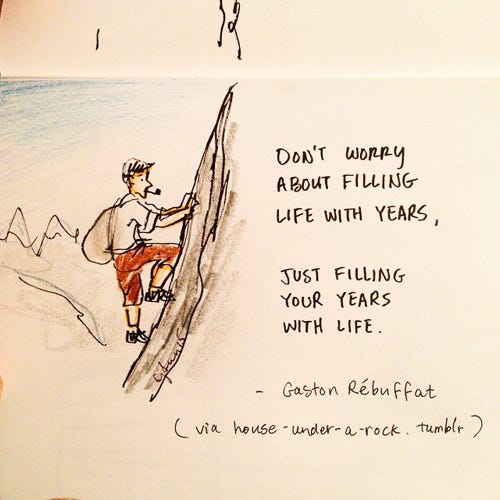 DON'T WORRY
ABOUT FILLING
LIFE WITH YEARS,
JUST FILLING
YOUR YEARS
WITH LIFE.
- Gaston Rébuffat
(via house-under-a-rock.tumblr)